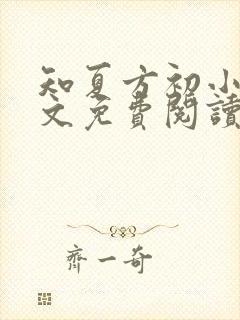 知夏方初小
文免費閱讀
齊一奇